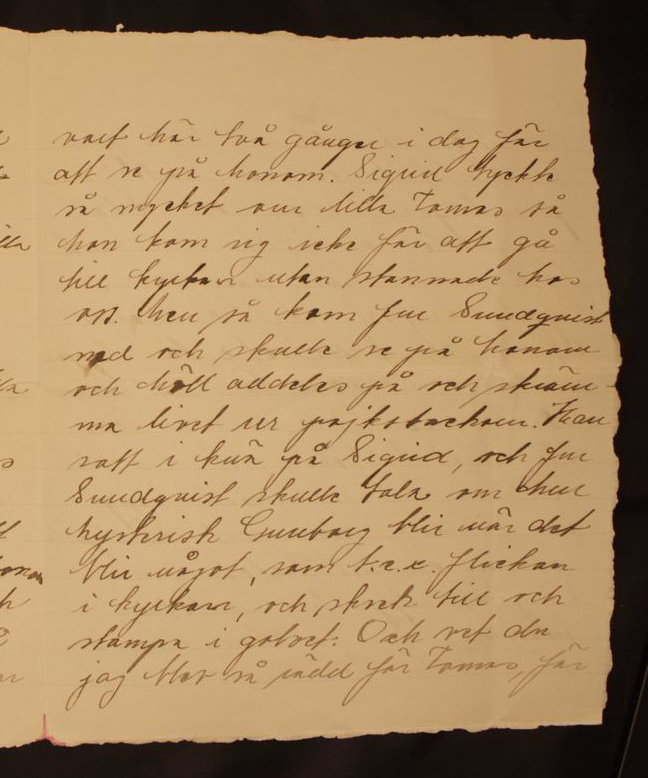 vart här två gånger i dag för
att se på honom. Sigrid tyckte
så mycket om lilla Tomas så
hon kom sig icke för att gå
till kyrkan utan stannade hos
oss. Men så kom fru Sundqvist
ned och skulle se på honom
och höll addeles på och skräm-
ma livet ur pojkstackarn. Han
satt i knä på Sigrid, och fru
Sundqvist skulle tala om hur
hysterisk Gunborg blir när det
blir något, som t.e.x. flickan
i kyrkan, och skrek till och
stampa i golvet. Och vet du
jag blev så rädd för Tomas, för